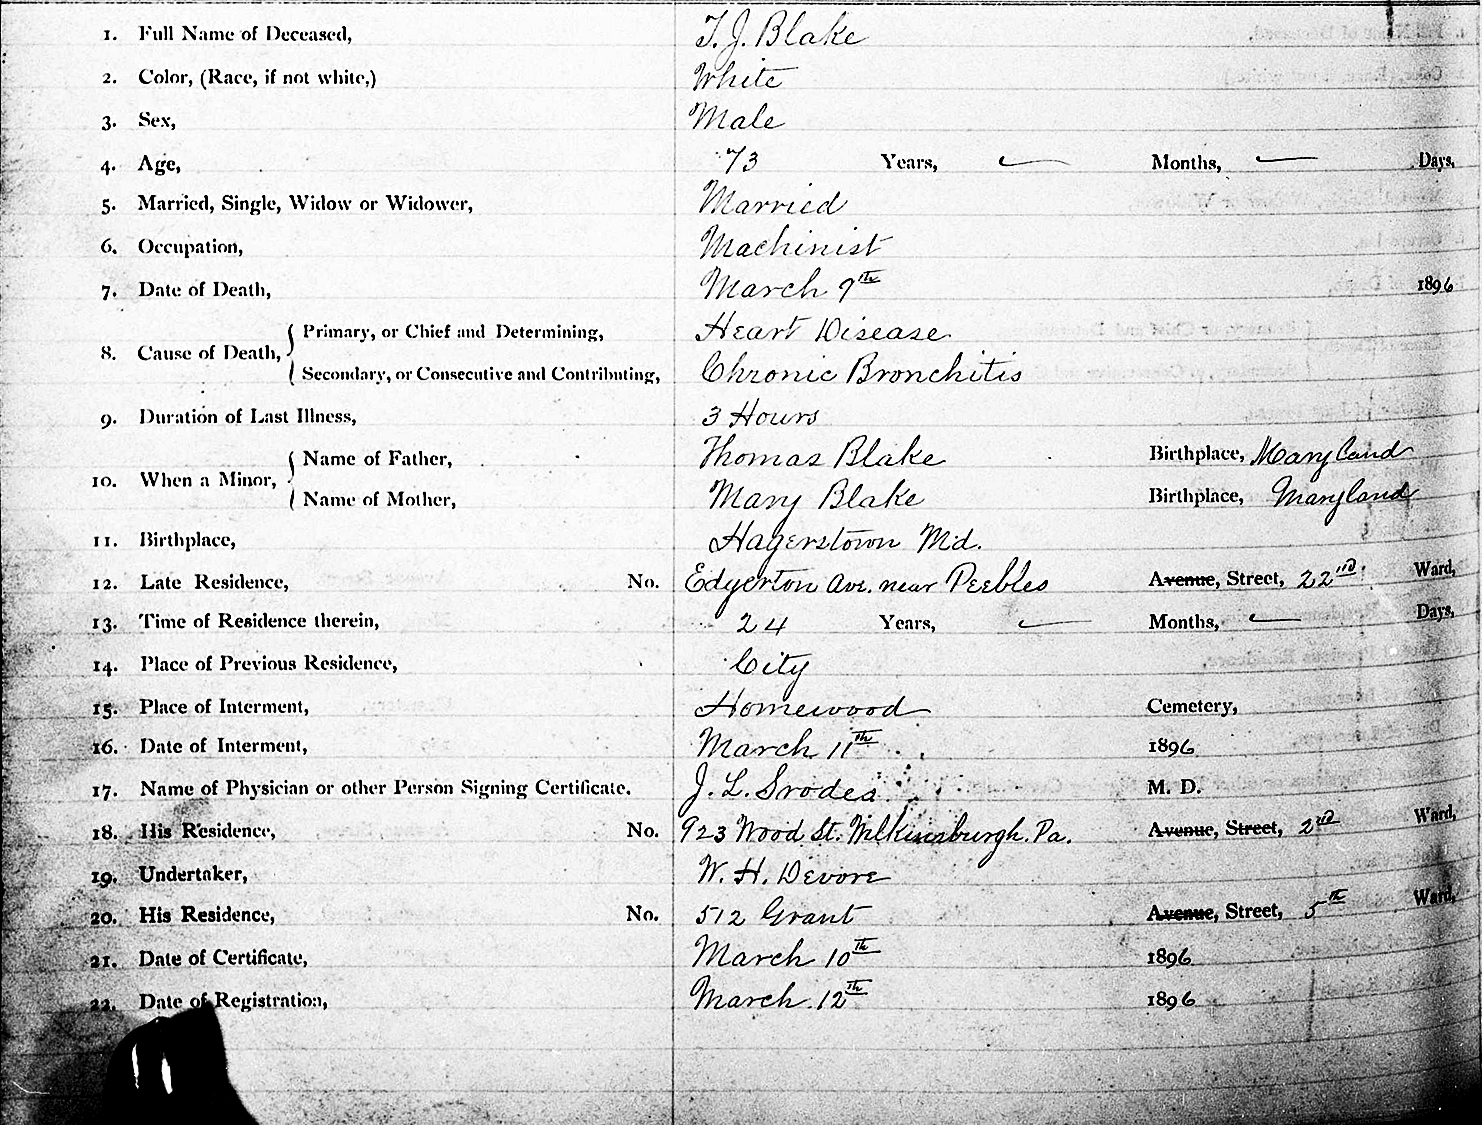 1. Full Name of Deceased, T. J. Blake
2. Color, (Race, if not white,) White
3. Sex, Male
4. Age, 73 Years, — Months, — Days,
5. Married, Single, Widow or Widower, Married
6. Occupation, Machinist
7. Date of Death, March 9th 1896
8. Cause of Death, { Primary, or Chief and Determining, Heart Disease
{ Secondary, or Consecutive and Contributing, Chronic Bronchitis
9. Duration of Last Illness, 3 Hours
10. When a Minor, { Name of Father, Thomas Blake Birthplace, Maryland
{ Name of Mother, Mary Blake Birthplace, Maryland
11. Birthplace, Hagerstown Md.
12. Late Residence, No. Edgerton Ave. near Peebles Avenue, Street, 22nd Ward,
13. Time of Residence therein, 24 Years, — Months, — Days,
14. Place of Previous Residence, City
15. Place of Interment, Homewood Cemetery,
16. Date of Interment, March 11th 1896
17. Name of Physician or other Person Signing Certificate. J. L. Srodes M. D.
18. His Residence, No. 923 Wood St. Wilkinsburgh. Pa. Avenue, Street, 2nd Ward,
19. Undertaker, W. H. Devore
20. His Residence, No. 512 Grant Avenue, Street, 5th Ward,
21. Date of Certificate, March 10th 1896
22. Date of Registration, March 12th 1896